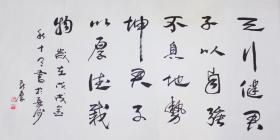 天行健君
子以自強
不息地勢
坤君子
以厚德載
物 歲在戊戌
秋十月書於